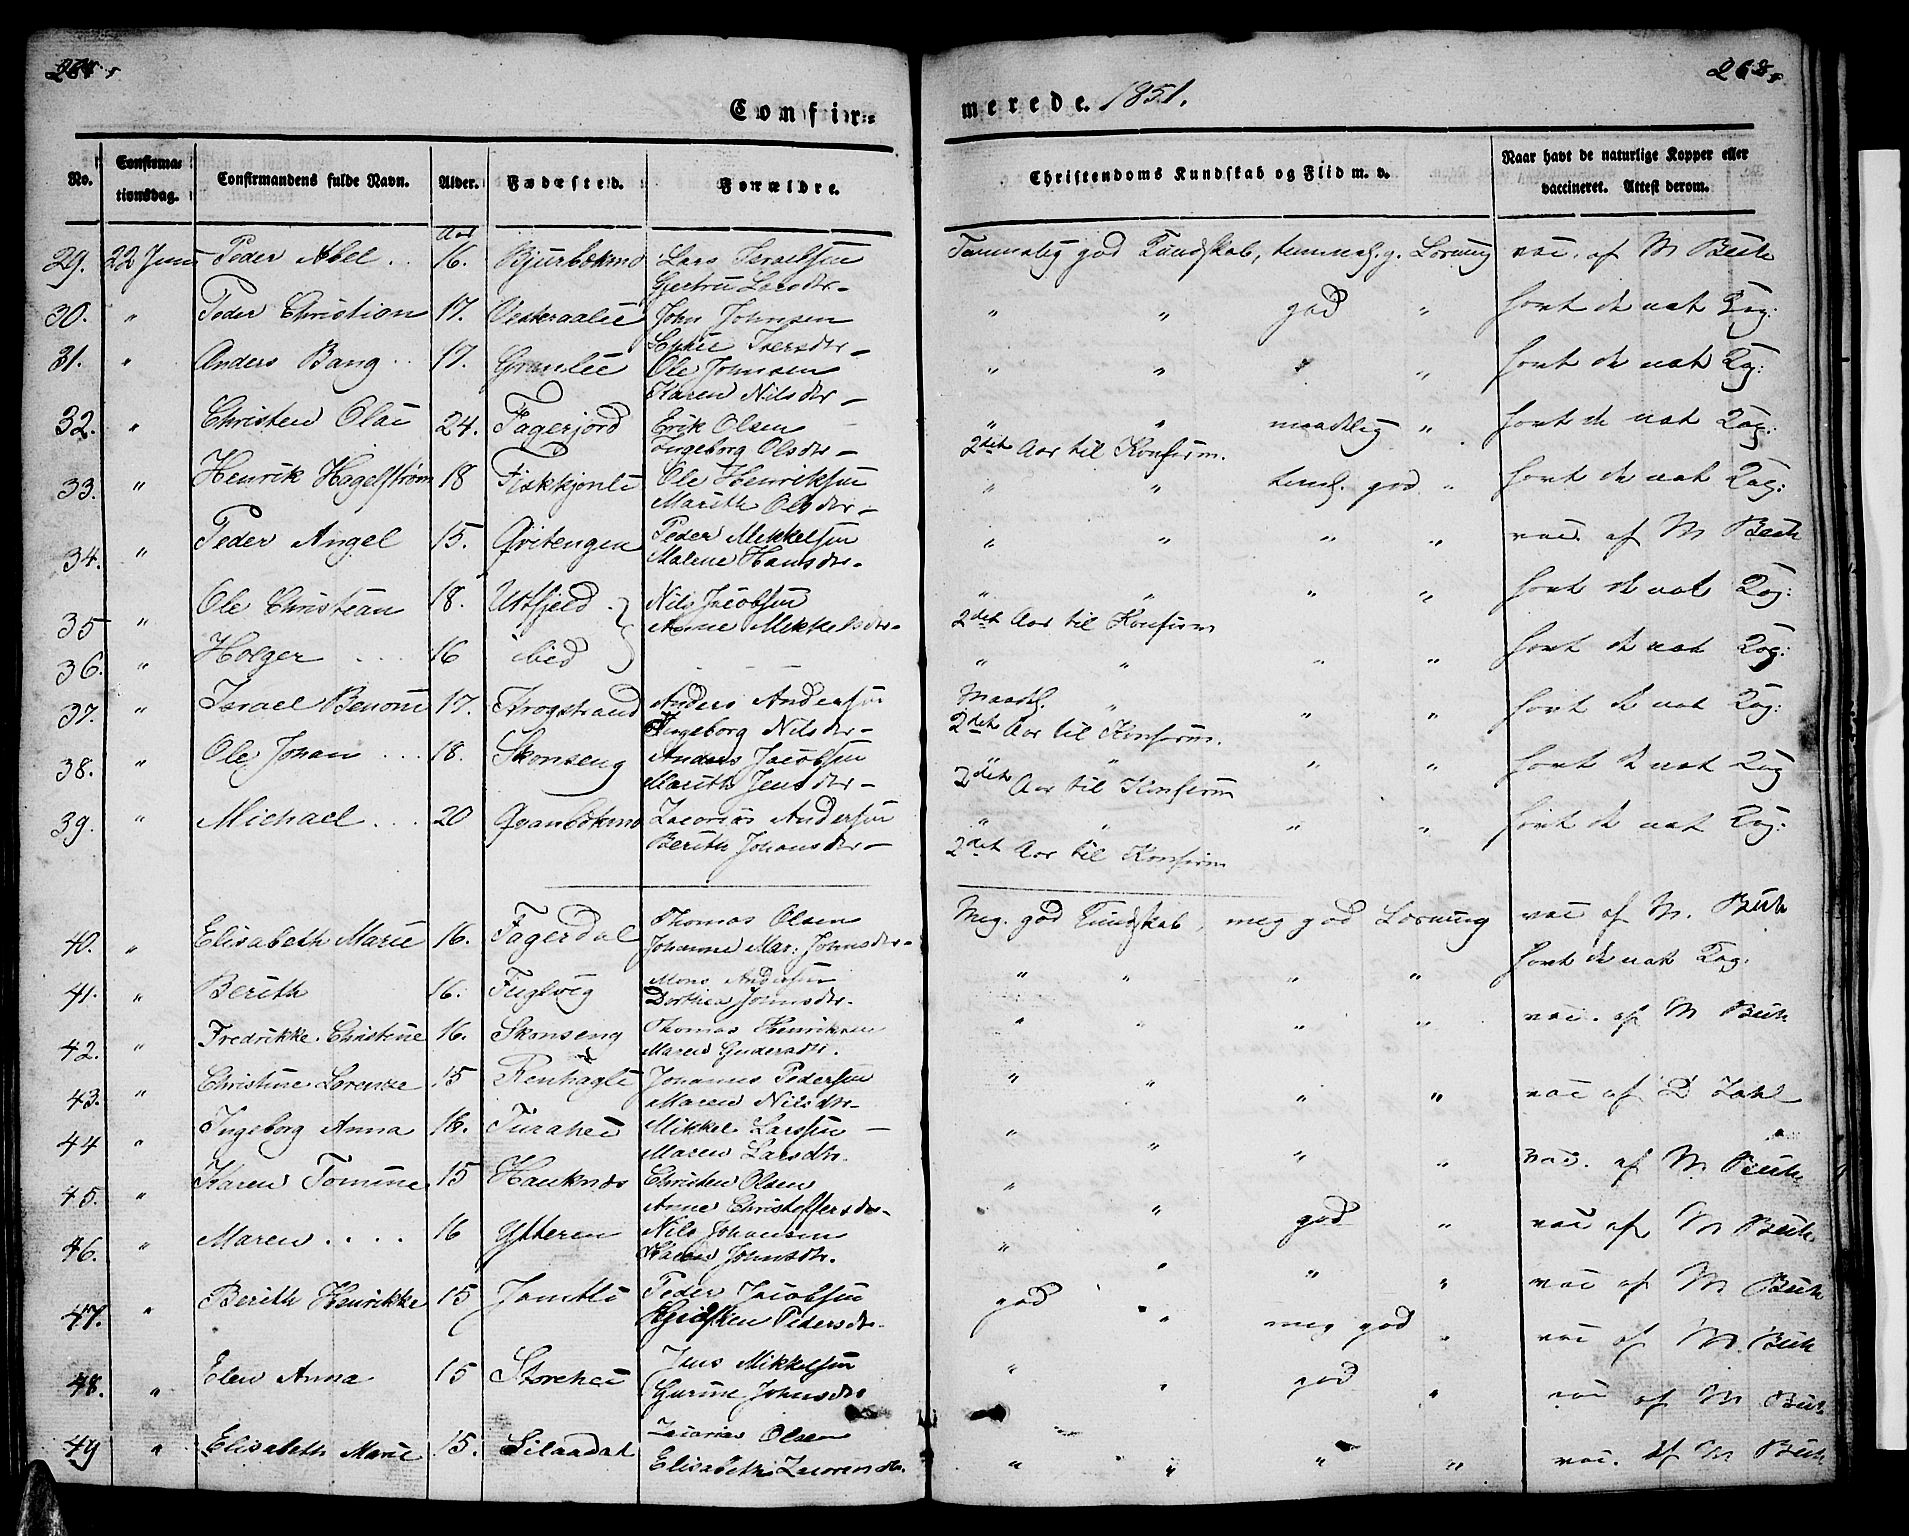 268.
Confir=
merede. 1851.
No. Confirma= tionsdag. Confirmandens fulde Navn. Alder. Fødested. Forældre. Christendoms Kundskab og Flid m. v. Naar havt de naturlige Kopper eller vaccineret. Attest derom.
Aar
29. 22 Juni Peder Abel .. 16. Bjurbækmo Lars Israelsen Temmelig god Kundskab, temmel. g. Læsning vac. af M Buch
Gjertru Larsdtr
30. " Peder Christian 17. Vesteraalie John Johnsen " " god " havt de nat Kop:
Iversdtr
31. " Anders Bang .. 17. Grønlie Ole Johnsen " " " " havt de nat Kop:
Karen Nilsdtr
32. " Christen Olai 24. Fagerjord Erik Olsen " " maadelig " havt de nat Kop:
Ingeborg Olsdtr 2det Aar til Konfirm.
33. " Henrik Hagelstrøm 18 Fiskkjønli Ole Henriksen " " teml. god " havt de nat Kop:
Marith Olsdtr
34. " Peder Angel 15. Qvitengen Peder Mikkelsen " " " " vac. af M Buch
Malene Hansdtr
35 " Ole Christian 18. Ustfjeld Nils Jacobsen " " " " havt de nat Kop:
Anne Mikkelsdtr 2det Aar til Konfirm
36. " Holger .... 16 ibid " " " " havt de nat Kop:
37. " Israel Benoni 17. Krogstrand Anders Andersen Maadl. " " " havt de nat Kop:
Ingeborg Nilsdtr 2det Aar til Konfirm.
38. " Ole Johan ... 18. Skonseng Anders Jacobsen " " " " havt de nat Kop
Marith Jensdtr 2det Aar til Konfirm
39. " Michael ... 20 Qvanbækmo Zacarias Andersen " " " " havt de nat Kop:
Berith Johansdtr 2det Aar til Konfirm
40. " Elisabeth Marie 16. Fagerdal Thomas Olsen Meg. god Kundskab, meg god Læsning vac af M. Buch
Johanne Mar: Johnsdtr
41. " Berith 16. Fuglvig Mons Andersen " " " " havt de nat Kop:
Dorthea Johnsdtr.
42. " Fredrikke Christine 16. Skonseng Thomas Henriksen " " " " vac. af M Buch
Maren
43. " Christine Lorentze 15 Renhagli Johannes Pedersen " " " " vac af D Zahl
Maren Nilsdtr
44 " Ingeborg Anna 16. Mikkel Larssen " " " " vac. af M. Buch
Maren Larsdtr.
45. " Karen Tomine 15 Hauknæs Christen Olsen " " god " vac af M Buch
Anne Christoffersdtr
46. " Maren .... 16 Ytteren Nils Johansen " " " " vac af M Buch
Karen Johnsdtr.
47. " Berith Henrikke 15 Jamtli Peder Jacobsen god " meg god " vac af M. Buch
Kjersten Pedersdtr.
48. " Elen Anna 15 Storehei Jens Mikkelsen " " god " vac af M Buch
Gurine Johnsdtr
49 " Elisabeth Marie 15. Silaadal Zacarias Olsen " " " " vac. af M Buch
Elisabeth